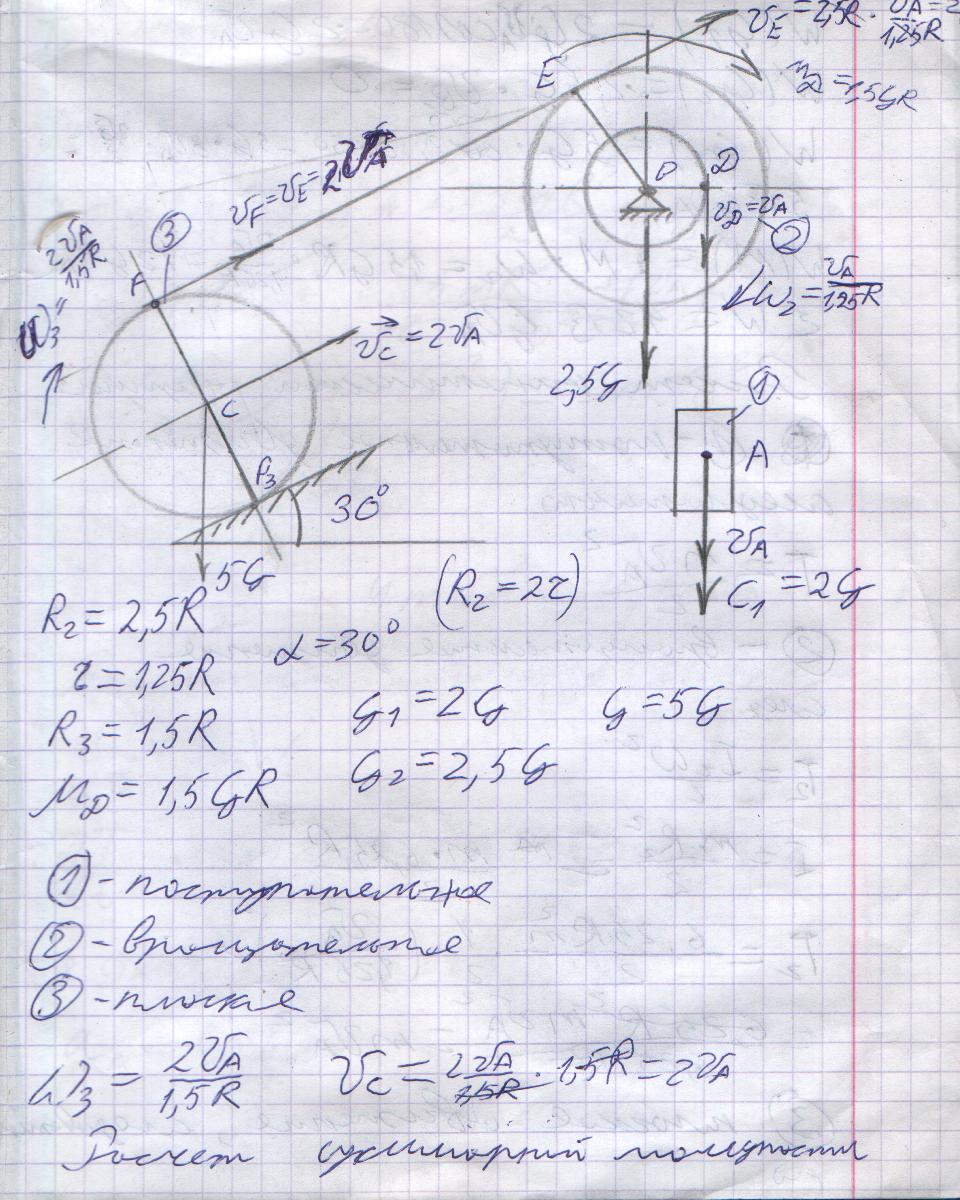 v_E = 2,5R · v_A/1,25R = 2
E
M_D = 1,5GR
O
D
v_F = v_E = 2v_A
v_D = v_A
②
ω₂ = v_A/1,25R
③
F
ω₃ = 2v_A/1,5R
v_C = 2v_A
C
2,5G
①
A
P₃
30°
v_A
5G
G₁ = 2G
R₂ = 2,5R
(R₂ = 2r)
α = 30°
r = 1,25R
G₁ = 2G G = 5G
R₃ = 1,5R
G₂ = 2,5G
M_D = 1,5GR
① - поступательное
② - вращательное
③ - плоское
ω₃ = 2v_A/1,5R v_C = 2v_A/1,5R · 1,5R = 2v_A
Расчет суммарной мощности